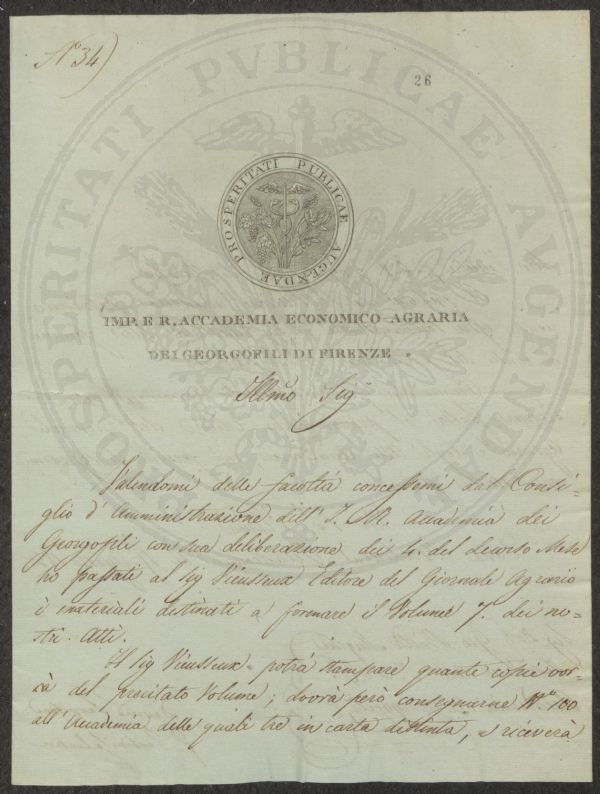 N.o 34)
26
PROSPERITATI PUBLICAE AUGENDAE
IMP. E R. ACCADEMIA ECONOMICO-AGRARIA
DEI GEORGOFILI DI FIRENZE
Illmo Sigre
Valendomi delle facoltà concessemi dal Consi-
glio d'Amministrazione dell'I. R. Accademia dei
Georgofili con sua deliberazione dei 4. del decorso Mese
ho passati al Sig Vieusseux Editore del Giornale Agrario
i materiali destinati a formare il Volume 7. dei no-
stri Atti.
Il Sig Vieusseux potrà stampare quante copie vor-
rà del precitato Volume; dovrà però consegnarne No. 100
all'Accademia delle quali tre in carta distinta, e riceverà